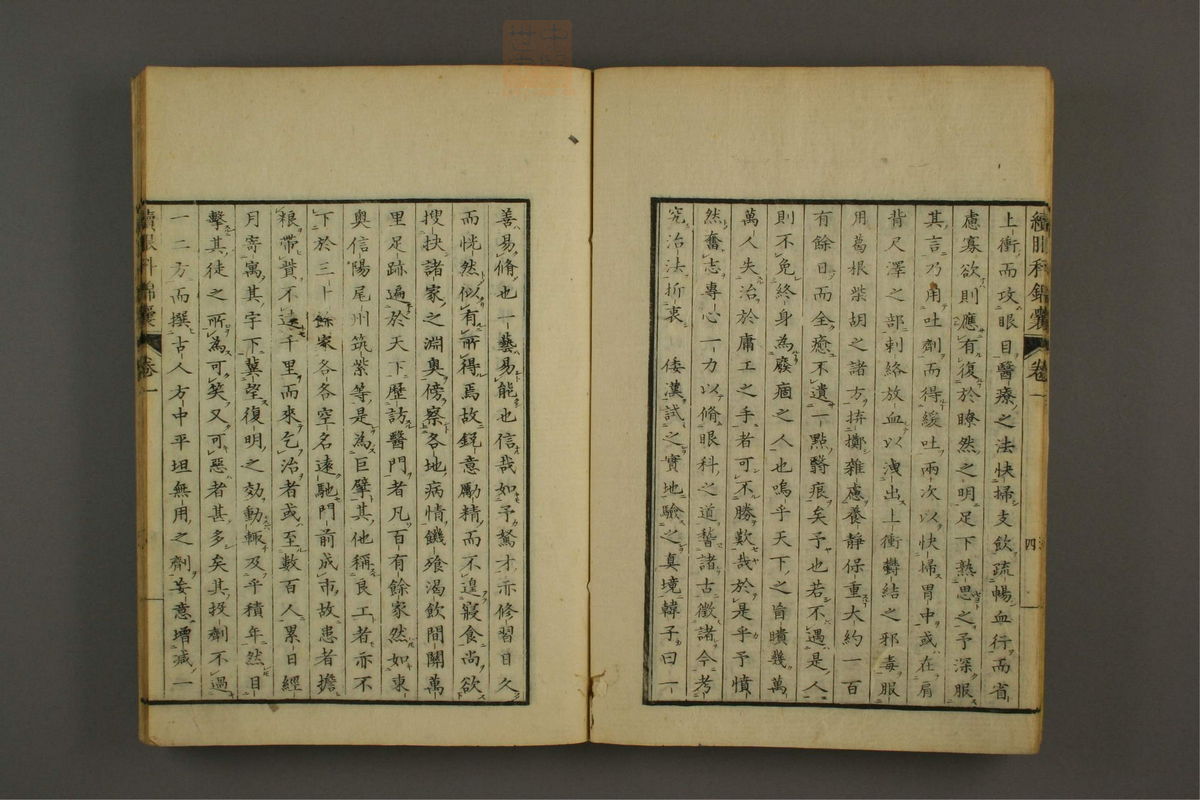 續眼科錦囊 卷一 四
上衝而攻眼目醫療之法快掃支飲疏暢血行而省
慮寡欲則應有復於瞭然之明足下熟思之予深服
其言乃用吐劑而得緩吐兩次以快掃胃中或在肩
背尺澤之部刺絡放血以洩出上衝欝結之邪毒服
用葛根柴胡之諸方拚擲雜慮養靜保重大約一百
有餘日而全癒不遺一點翳痕矣予也若不遇是人
則不免終身為廢痼之人也嗚乎天下之盲瞶幾萬
萬人失治於庸工之手者可不勝歎哉於是乎予憤
然奮志專心一力以脩眼科之道稽諸古徵諸今考
究治法折衷 倭漢試之實地驗之真境韓子曰一
善易脩也一藝易能也信哉如予駑才亦修習日久
而恍然似有所得焉故銳意勵精而不遑寢食尚欲
搜抉諸家之淵奧傍察各地病情饑飱渴飲間關萬
里足跡遍於天下歷訪醫門者凡百有餘家然如東
奧信陽尾州筑紫等是為巨擘其他稱良工者亦不
下於三十餘家各各空名遠馳門前成市故患者擔
粮帶貲不遠千里而來乞治者或至數百人累日經
月寄寓其宇下冀望復明之効動輙及乎積年然目
擊其徒之所為可笑又可惡者甚多矣其投劑不過
一二方而撰古人方中平坦無用之劑妄意增減一
續眼科錦囊 卷一